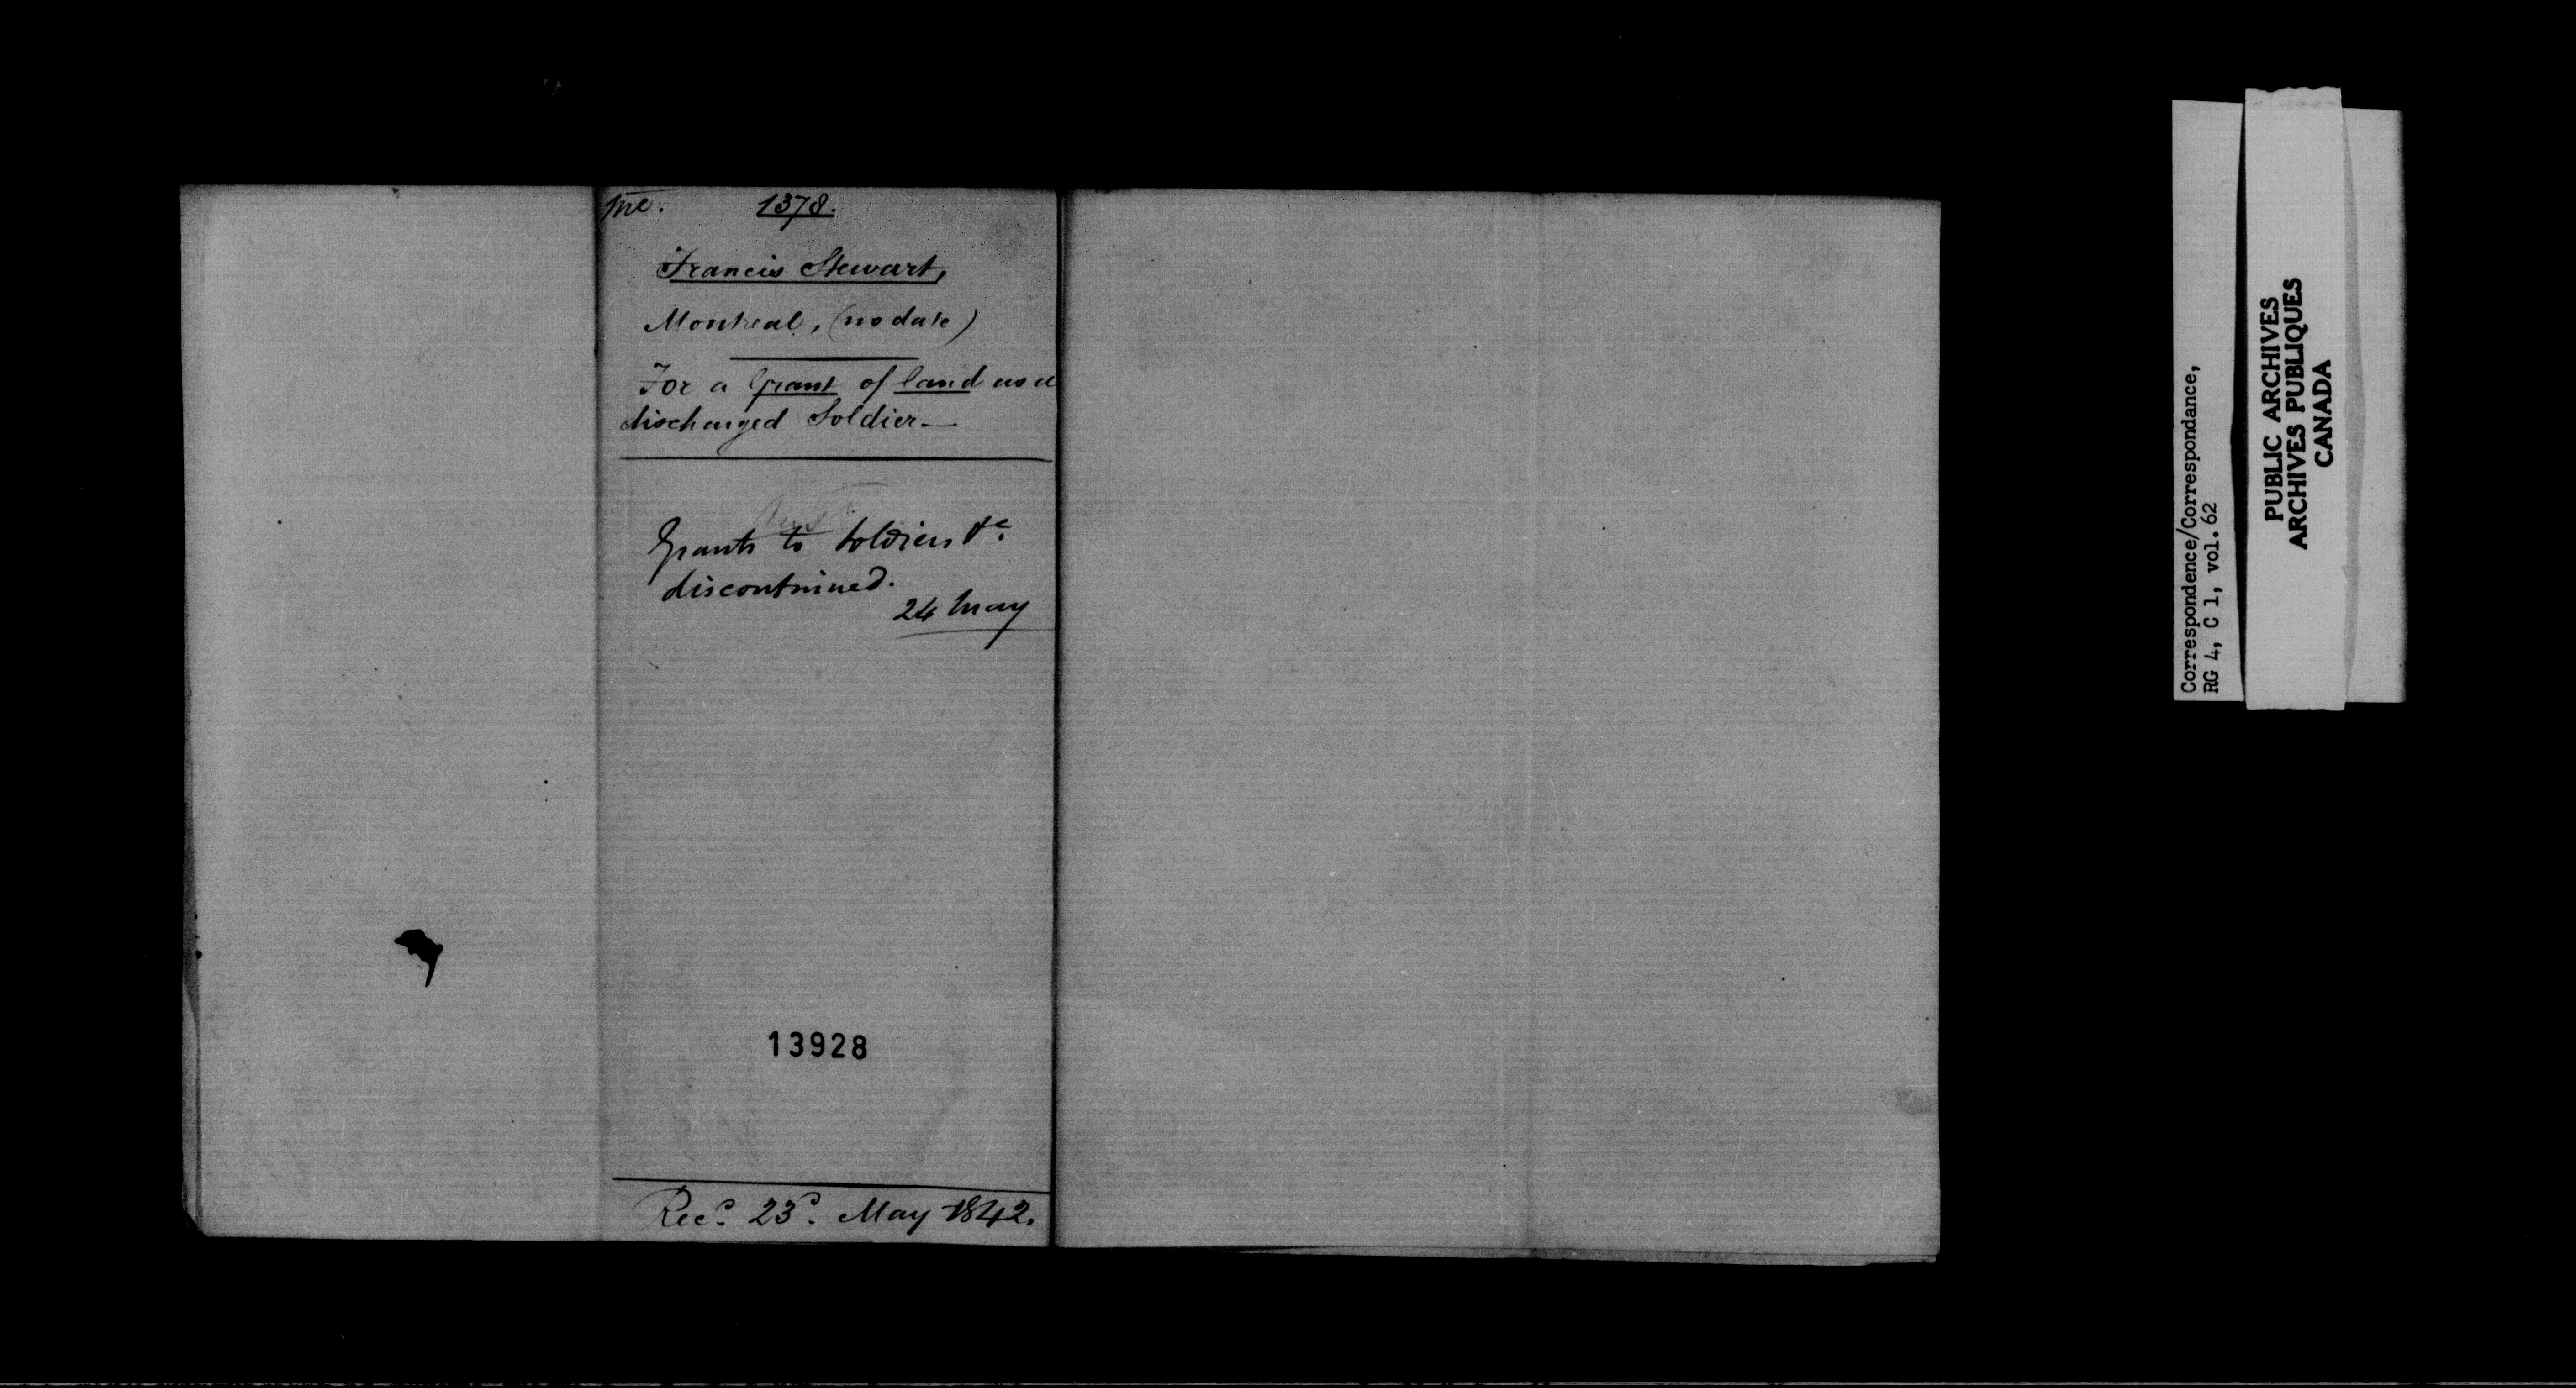 1378.
Francis Stewart,
Montreal, (no date)
For a Grant of land as a
discharged Soldier—
Grants to Soldiers &c.
discontinued.
24 May
13928
Recd. 23d. May 1842.
Correspondence/Correspondance,
RG 4, C 1, vol. 62
PUBLIC ARCHIVES
ARCHIVES PUBLIQUES
CANADA